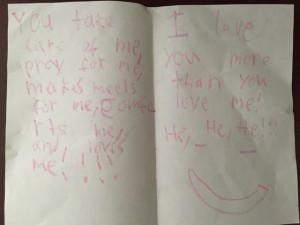 You take
care of me,
pray for me,
makes meels
for me, comfo
rts me,
and loves
me!!!!
I love
you more
than you
love me!
He, He, He!!!